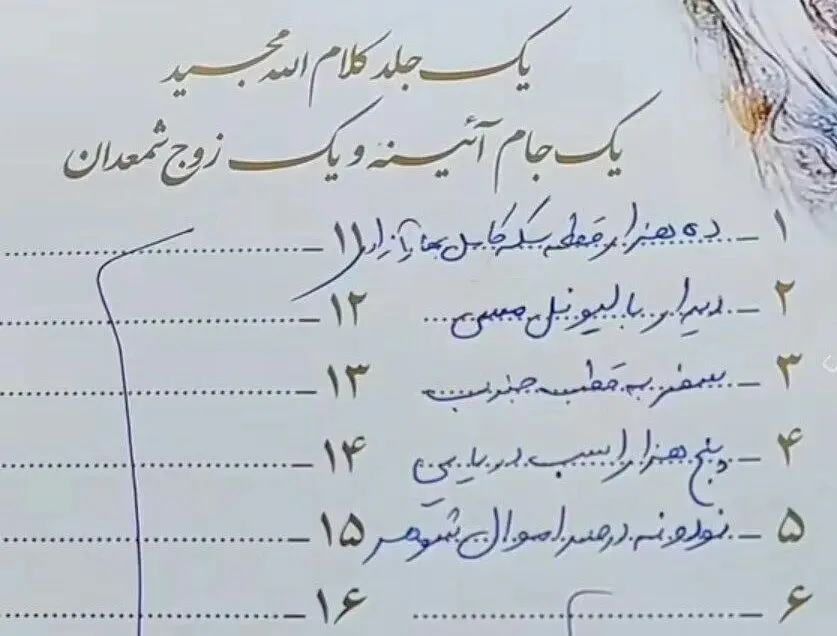 یک جلد کلام الله مجید
یک جام آئینه و یک زوج شمعدان
۱ - ده هزار قطعه سکه کامل بهار آزادی
۲ - دیدار با لیونل مسی
۳ - سفر به قطب جنوب
۴ - پنج هزار اسب دریایی
۵ - نود و نه درصد اموال شوهر
۶ -
۱۱ -
۱۲ -
۱۳ -
۱۴ -
۱۵ -
۱۶ -